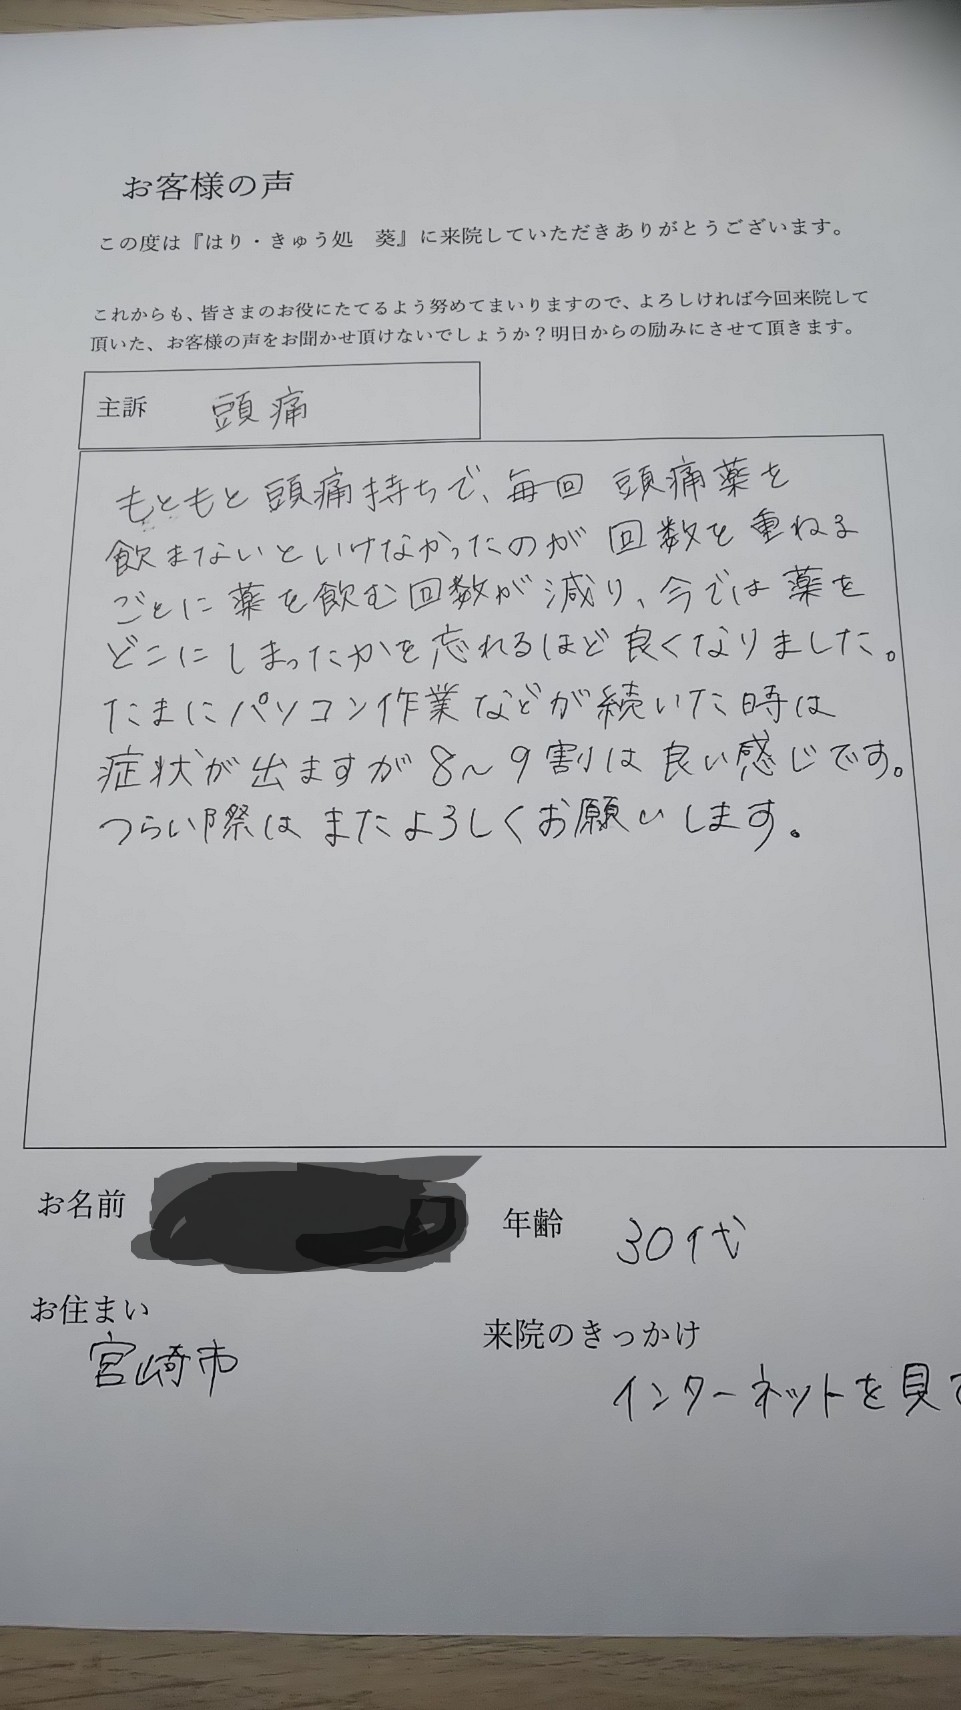 お客様の声
この度は『はり・きゅう処　葵』に来院していただきありがとうございます。
これからも、皆さまのお役にたてるよう努めてまいりますので、よろしければ今回来院して
頂いた、お客様の声をお聞かせ頂けないでしょうか？明日からの励みにさせて頂きます。
主訴　頭痛
もともと頭痛持ちで、毎回 頭痛薬を
飲まないといけなかったのが 回数を重ねる
ごとに薬を飲む回数が減り、今では薬を
どこにしまったかを忘れるほど良くなりました。
たまにパソコン作業などが続いた時は
症状が出ますが8〜9割は良い感じです。
つらい際はまたよろしくお願いします。
お名前
年齢　30代
お住まい
宮崎市
来院のきっかけ
インターネットを見て